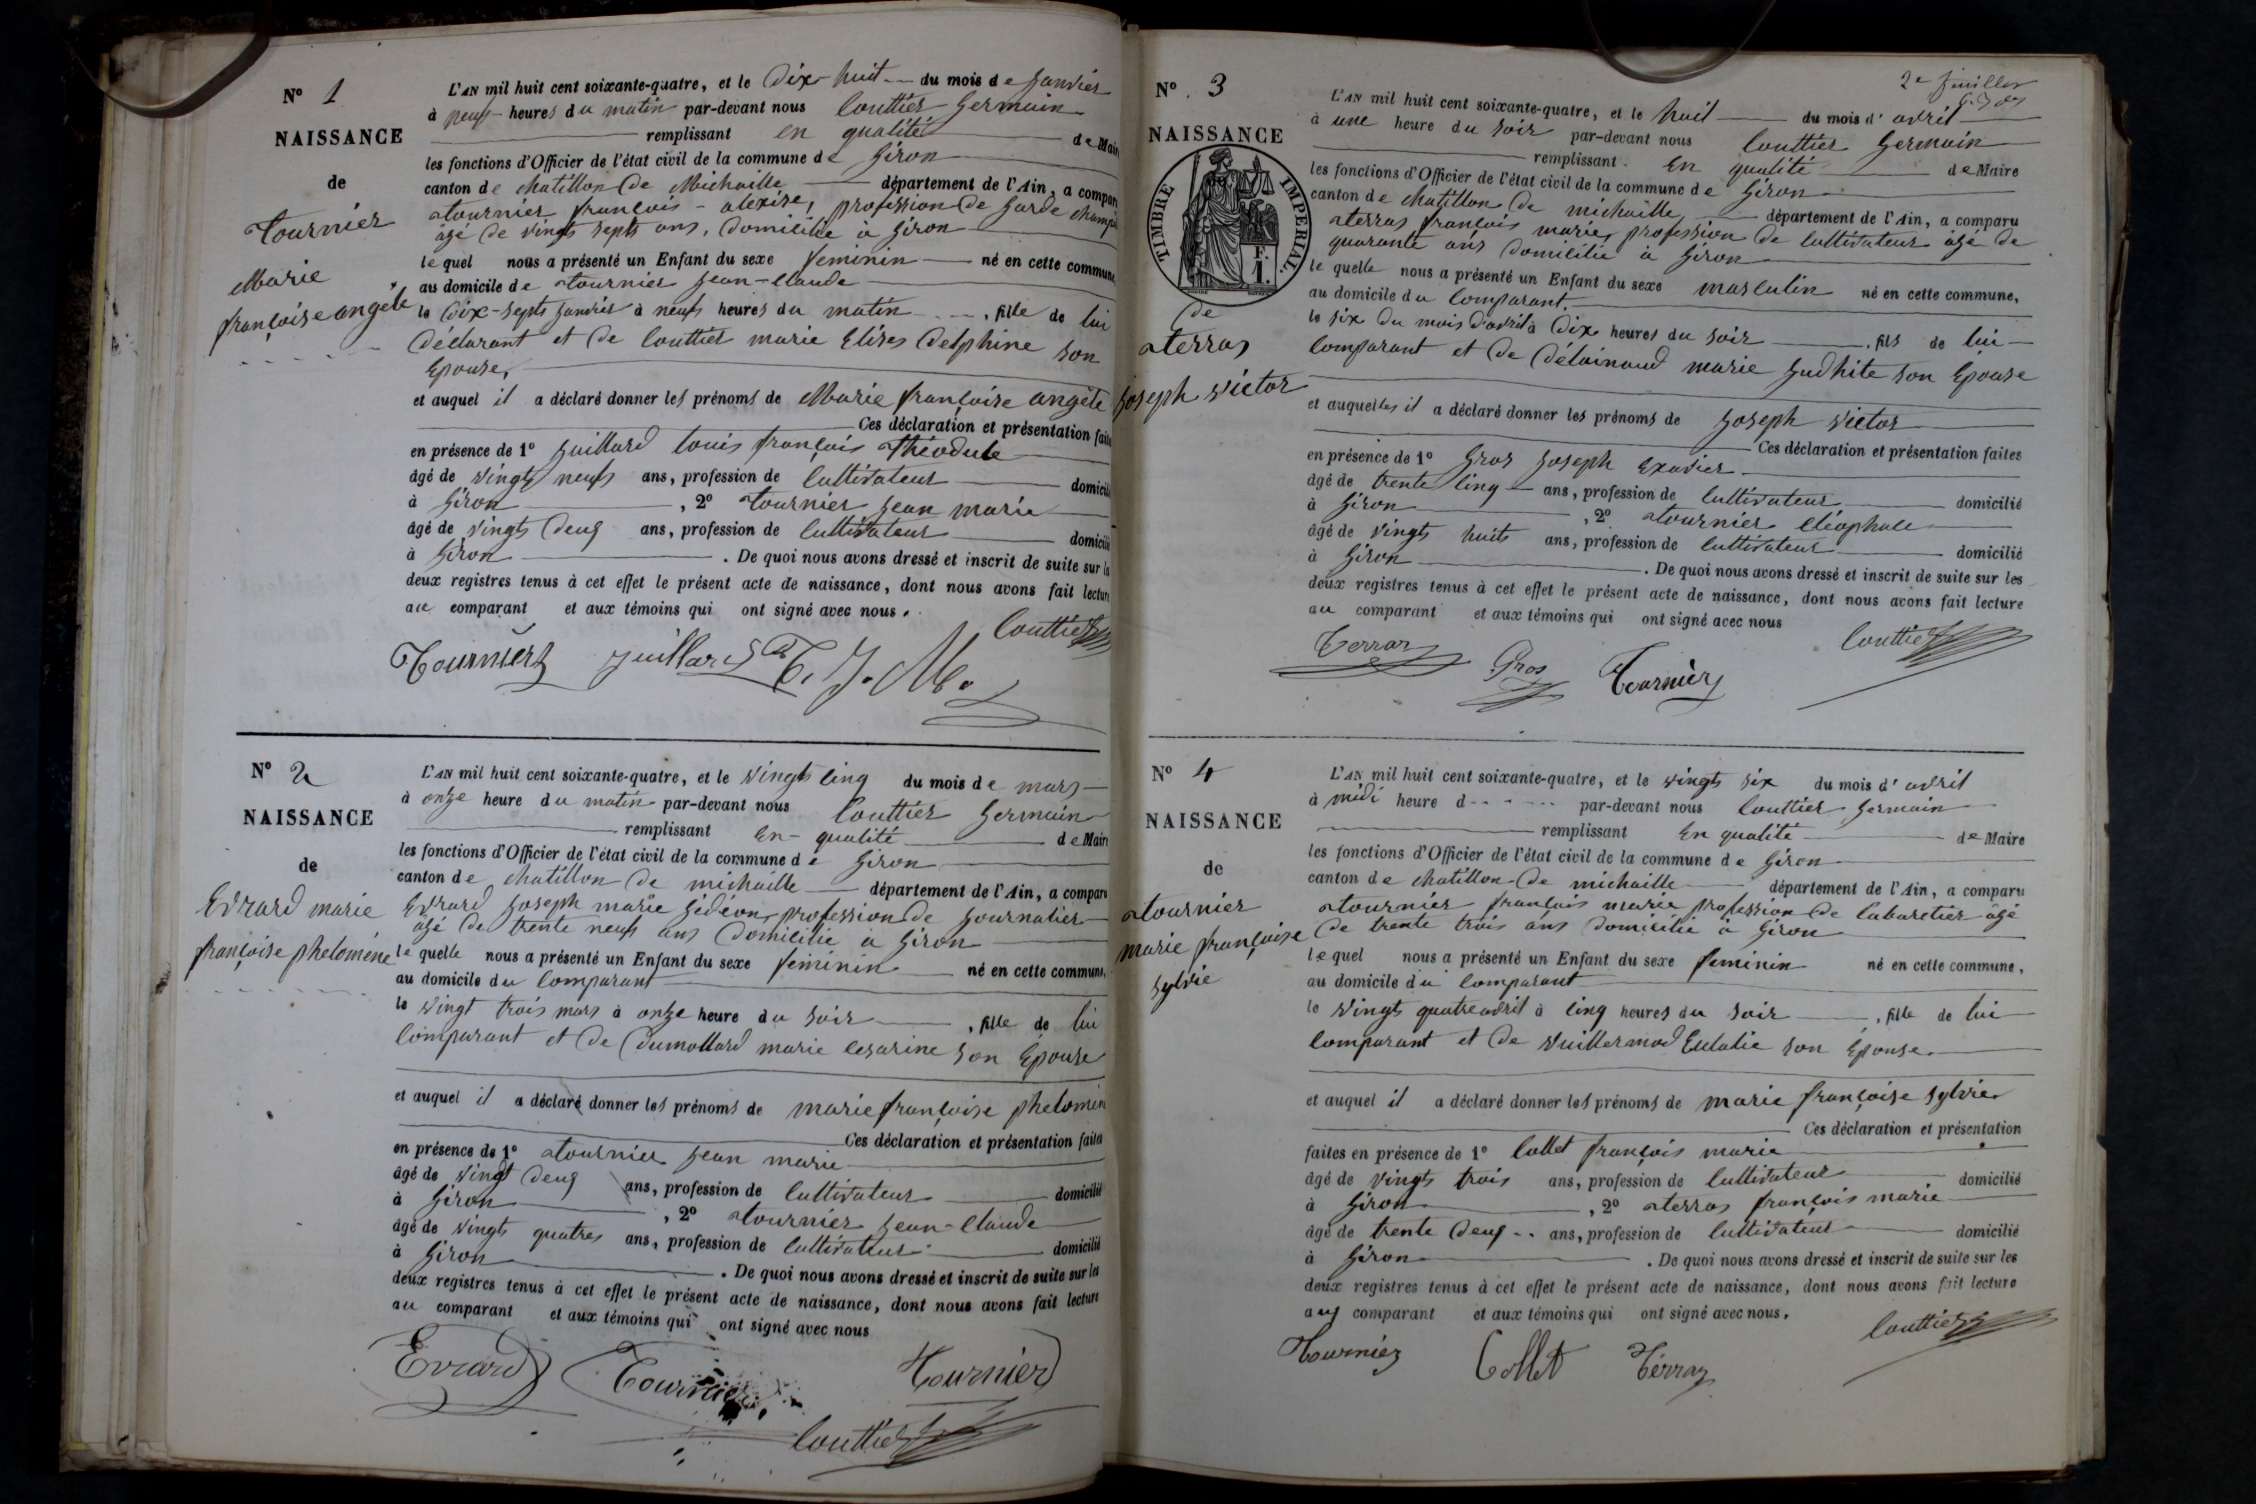 N° 1
NAISSANCE
de
Tournier
Marie
françoise angèle
L'AN mil huit cent soixante-quatre, et le Dix-huit du mois de janvier
à neuf heures du matin par-devant nous Couttier Germain
remplissant en qualité de Maire
les fonctions d'Officier de l'état civil de la commune de Giron
canton de chatillon de Michaille département de l'Ain, a comparu
tournier françois-alexise, profession de Garde champ
âgé de vingt septs ans, domicilié à Giron
le quel nous a présenté un Enfant du sexe feminin né en cette commune,
au domicile de tournier jean-claude
le Dix-septs janvier à neufs heures du matin, fille de lui
déclarant et de Couttier marie Elises Delphine son
Epouse,
et auquel il a déclaré donner les prénoms de Marie françoise angèle
Ces déclaration et présentation faites
en présence de 1° juillard Louis françois théodule
âgé de vingts neufs ans, profession de Cultivateur domicilié
à Giron, 2° tournier jean marie
âgé de vingts deux ans, profession de Cultivateur domicilié
à Giron. De quoi nous avons dressé et inscrit de suite sur les
deux registres tenus à cet effet le présent acte de naissance, dont nous avons fait lecture
au comparant et aux témoins qui ont signé avec nous.
Couttier
Tournier juillard T. J. M.
N° 2
NAISSANCE
de
Evrard marie
françoise phelomène
L'AN mil huit cent soixante-quatre, et le vingts cinq du mois de mars
à onze heure du matin par-devant nous Couttier Germain
remplissant En-qualité de Maire
les fonctions d'Officier de l'état civil de la commune de Giron
canton de chatillon de michaille département de l'Ain, a comparu
Evrard Joseph marie Gédéon, profession de journalier
âgé de trente neuf ans domicilié à Giron
le quelle nous a présenté un Enfant du sexe feminin né en cette commune,
au domicile du Comparant
le vingt trois mars à onze heure du soir, fille de lui
Comparant et de Dumollard marie Cesarine son Epouse
et auquel il a déclaré donner les prénoms de marie françoise phelomèn
Ces déclaration et présentation faites
en présence de 1° tournier jean marie
âgé de vingt deux ans, profession de Cultivateur domicilié
à Giron, 2° tournier jean-claude
âgé de vingts quatres ans, profession de Cultivateur domicilié
à Giron. De quoi nous avons dressé et inscrit de suite sur les
deux registres tenus à cet effet le présent acte de naissance, dont nous avons fait lecture
au comparant et aux témoins qui ont signé avec nous
Evrard Tournier Tournier
Couttier
2e feuillet
N° 3
NAISSANCE
TIMBRE IMPERIAL
F.
1.
de
terras
joseph victor
L'AN mil huit cent soixante-quatre, et le huit du mois d'avril
à une heure du soir par-devant nous Couttier Germain
remplissant En qualité de Maire
les fonctions d'Officier de l'état civil de la commune de Giron
canton de chatillon de michaille département de l'Ain, a comparu
terras françois marie, profession de Cultivateur âgé de
quarante ans domicilié à Giron
le quelle nous a présenté un Enfant du sexe masculin né en cette commune,
au domicile du Comparant.
le six du mois d'avril à Dix heures du soir, fils de lui
Comparant et de Détoinaud marie Judhite son Epouse
et auquelles il a déclaré donner les prénoms de joseph victor
Ces déclaration et présentation faites
en présence de 1° Gros joseph Exavier
âgé de trente cinq ans, profession de Cultivateur domicilié
à Giron, 2° tournier Cléophale
âgé de vingts huits ans, profession de Cultivateur domicilié
à Giron. De quoi nous avons dressé et inscrit de suite sur les
deux registres tenus à cet effet le présent acte de naissance, dont nous avons fait lecture
au comparant et aux témoins qui ont signé avec nous
Terraz Gros Tournier Couttier
N° 4
NAISSANCE
de
tournier
marie françoise
sylvie
L'AN mil huit cent soixante-quatre, et le vingts six du mois d'avril
à midi heure d par-devant nous Couttier Germain
remplissant En qualité de Maire
les fonctions d'Officier de l'état civil de la commune de Giron
canton de chatillon-de michaille département de l'Ain, a comparu
tournier françois marie profession de Cabaretier âgé
de trente trois ans domicilié à Giron
le quel nous a présenté un Enfant du sexe feminin né en cette commune,
au domicile du Comparant
le vingts quatre avril à cinq heures du soir, fille de lui
Comparant et de vuillermod Eulalie son Epouse.
et auquel il a déclaré donner les prénoms de marie françoise sylvie
Ces déclaration et présentation
faites en présence de 1° Collet françois marie
âgé de vingts trois ans, profession de Cultivateur domicilié
à Giron, 2° terras françois marie
âgé de trente deux ans, profession de Cultivateur domicilié
à Giron. De quoi nous avons dressé et inscrit de suite sur les
deux registres tenus à cet effet le présent acte de naissance, dont nous avons fait lecture
aux comparant et aux témoins qui ont signé avec nous.
Couttier
Tournier Collet Térraz